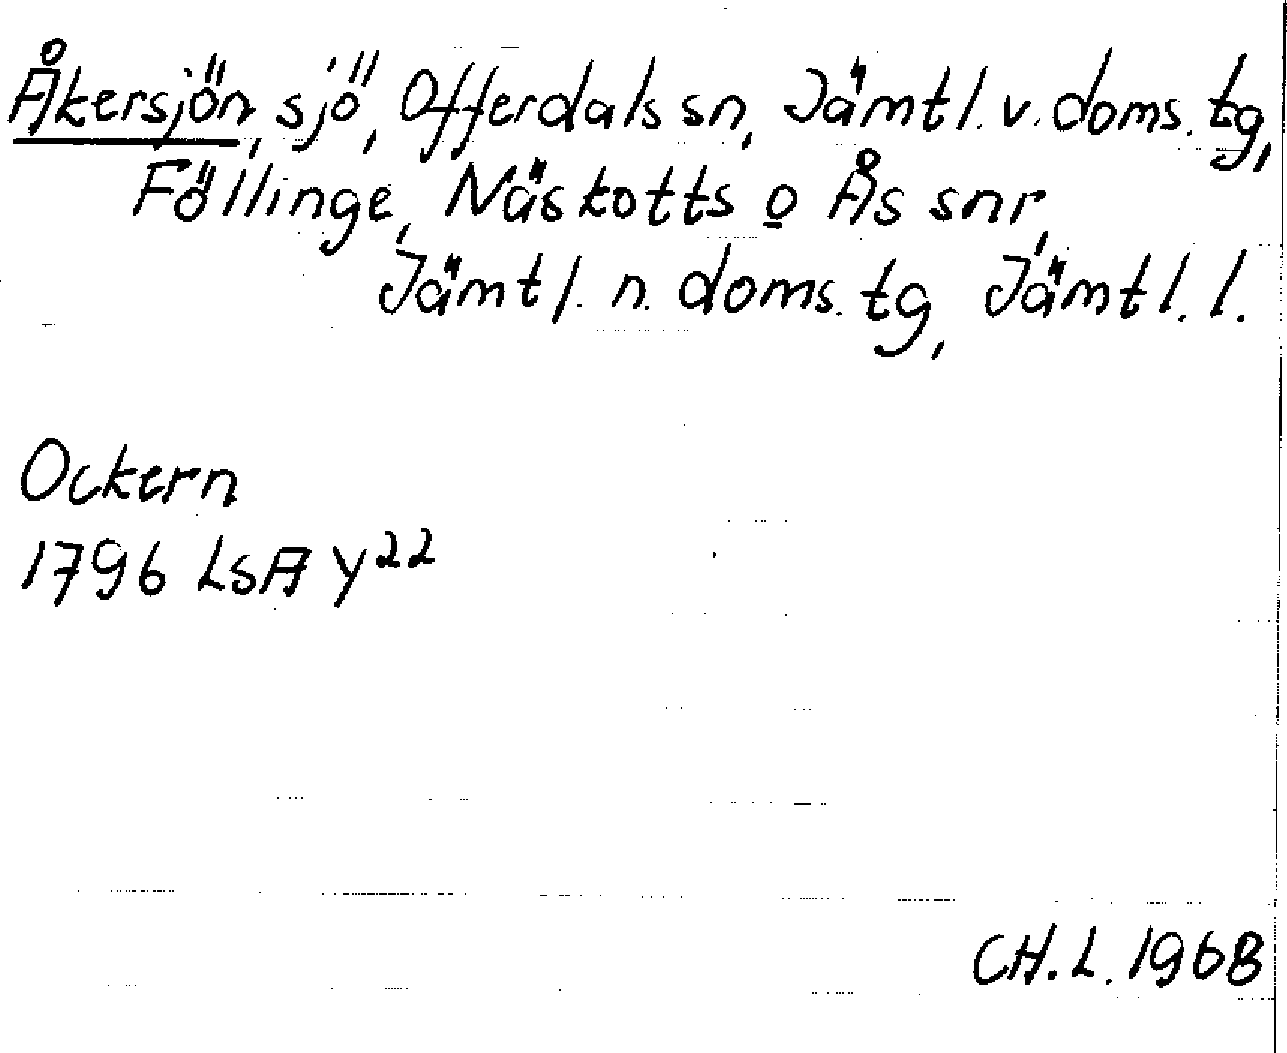 Åkersjön, sjö, Offerdals sn, Jämtl. v. doms. tg,
Föllinge, Näskotts o Ås snr,
Jämtl. n. doms. tg, Jämtl. l.
Ockern
1796 LSA Y²²
CH. L. 1968